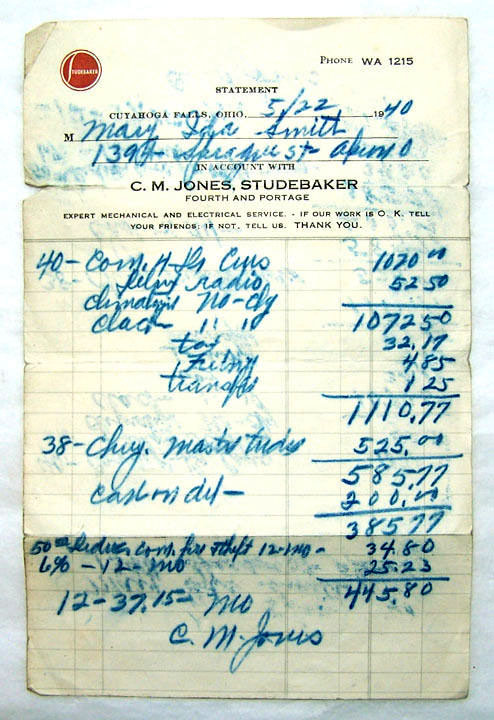 STUDEBAKER
PHONE WA 1215
STATEMENT
CUYAHOGA FALLS, OHIO, 5/22 1940
M Mary Ida Smith
1394 Sprague St - Akron O
IN ACCOUNT WITH
C. M. JONES, STUDEBAKER
FOURTH AND PORTAGE
EXPERT MECHANICAL AND ELECTRICAL SERVICE. - IF OUR WORK IS O. K. TELL
YOUR FRIENDS; IF NOT, TELL US. THANK YOU.
40 - Com. 4 Dr Crus 1020 00
radio 52 50
Climatizer No-dy
" " 107250
tax 32.17
4.85
transfer 1 25
1110.77
38 - Chev. Master tudor 525.00
585.77
Cash on del - 200.00
38577
50 00 deduc com. fire & theft 12-mo - 34.80
6% - 12 - mo 25.23
445.80
12 - 37.15 - mo
C. M. Jones